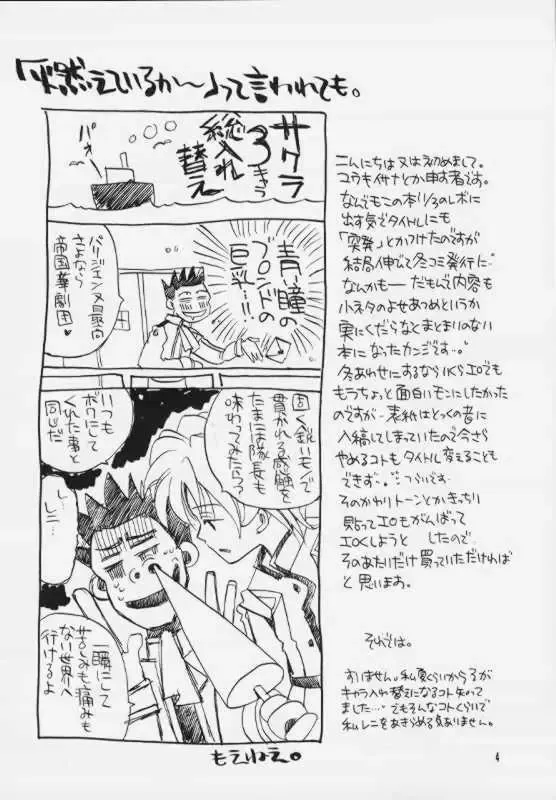 「燃えているか〜」って言われても。
サクラ
3きっ
総入れ
替え
パオー
青い瞳の
ブロンドの
巨乳…!!
パリジェンヌ最高
さよなら
帝国華劇団
固く鋭いモンで
貫かれる感触を
たまには隊長も
味わってみたら?
いつも
ボクにして
くれた事と
同じだ
し…
レニ…
一瞬にして
苦しみも痛みも
ない世界へ
行けるよ
もえねえ。
こんにちは又は初めまして。
ユウキイサナとか申す者です。
なんでもこの本11/3のレボに
出す気でタイトルにも
「突発」とかつけたのですが
結局伸びて冬コミ発行に。
なんかもー だもんで内容も
小ネタのよせあつめというか
実にくだらなくまとまりのない
本になったカンジです…。
冬あわせにするならばエロでも
もうちょっと面白いモンにしたかった
のですが…表紙はとっくの昔に
入稿してしまっていたので今さら
やめるコトもタイトル変えることも
できず…。つらいです。
そのかわりトーンとかきっちり
貼ってエロもがんばって
エロくしようと したので
そのあたいだけ買っていただければ
と思いまあ。
それでは。
すいません。私夏くらいから3が
キャラ入れ替えになるコト知って
ました…。でもそんなコトくらいで
私レニをあきらめる気ありません。
4